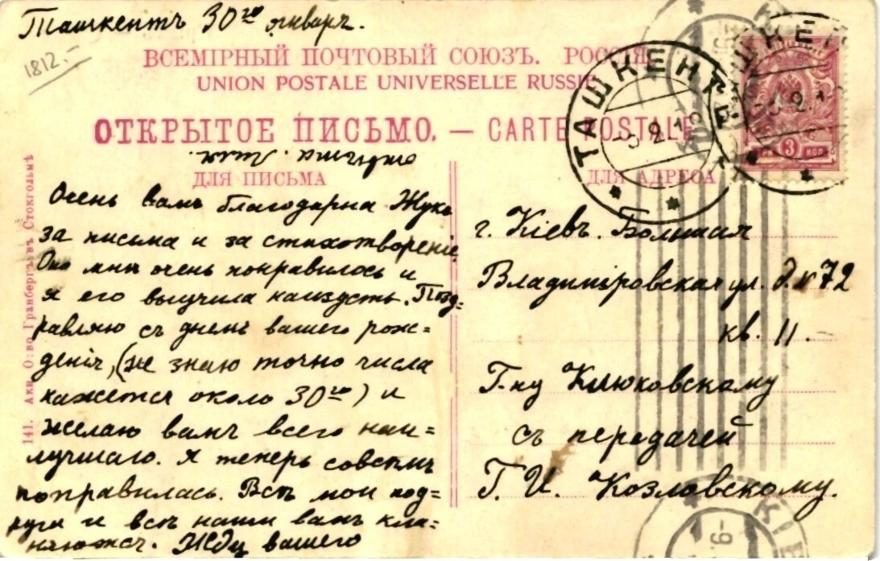 Ташкентъ 30го января.
1812.-
ВСЕМІРНЫЙ ПОЧТОВЫЙ СОЮЗЪ. РОССІЯ
UNION POSTALE UNIVERSELLE RUSSIE
ОТКРЫТОЕ ПИСЬМО. — CARTE POSTALE
ДЛЯ ПИСЬМА
Очень вамъ благодарна Жукъ
за письма и за стихотвореніе
Оно мнѣ очень понравилось и
я его выучила наизусть. Позд-
равляю съ днемъ вашего рож=
денія, (не знаю точно числа
кажется около 30го) и
желаю вамъ всего наи=
лучшаго. Я теперь совсѣмъ
поправилась. Всѣ мои под=
руги и всѣ наши вамъ кла=
няются. Жду вашего
ДЛЯ АДРЕСА
г. Кіевъ. Большая
Владиміровская ул. д. № 72
кв. 11.
Г-ну Клюковскому
съ передачей
Г. И. Козловскому.
141. Акц. О-во Гранбергъ въ Стокгольмѣ
ТАШКЕНТ
ТАШКЕНТ
3 КОП
КІЕВ